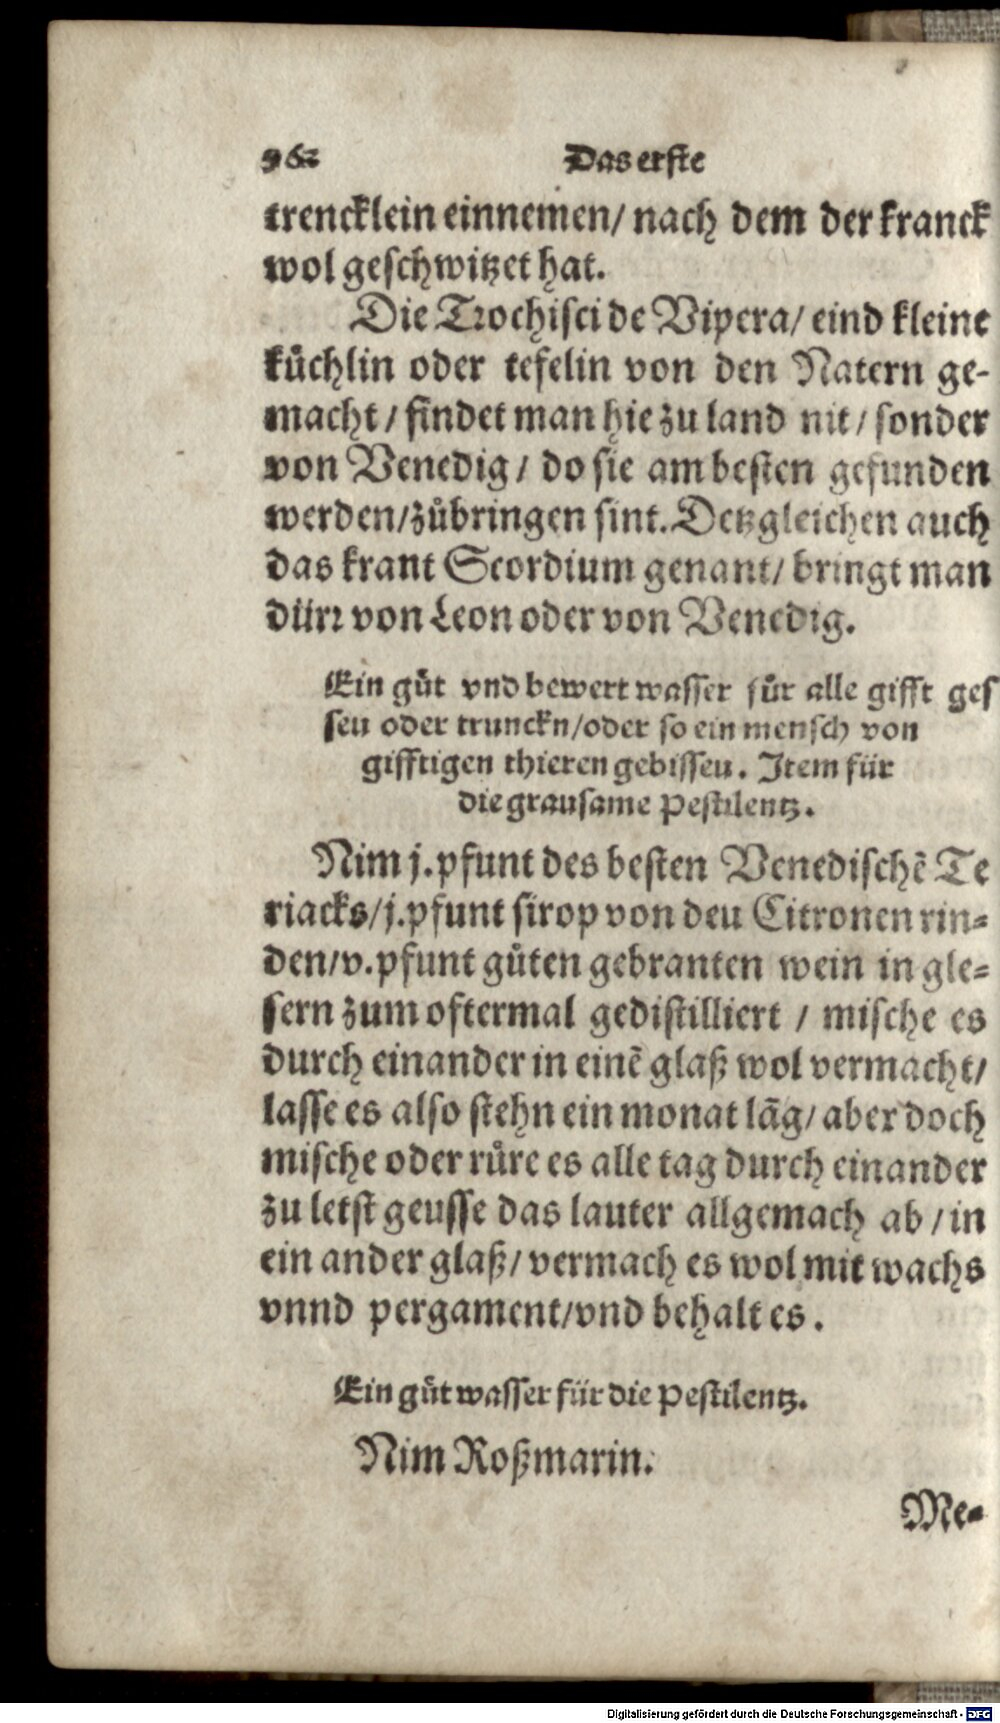 962 Das erste
trencklein einnemen/ nach dem der kranck
wol geschwitzet hat.
Die Trochisci de Vipera/ eind kleine
kuͤchlin oder tefelin von den Natern ge-
macht/ findet man hie zu land nit/ sonder
von Venedig/ do sie am besten gefunden
werden/zuͤbringen sint. Detzgleichen auch
das krant Scordium genant/ bringt man
dürr von Leon oder von Venedig.
Ein guͤt vnd bewert wasser fuͤr alle gifft ges
seu oder trunckn/oder so ein mensch von
gifftigen thieren gebisseu. Item für
die grausame Pestilentz.
Nim j. pfunt des besten Venedischẽ Te
riacks/j. pfunt sirop von deu Citronen rin-
den/v. pfunt guͤten gebranten wein in gle-
sern zum oftermal gedistilliert / mische es
durch einander in einẽ glaß wol vermacht/
lasse es also stehn ein monat lãg/ aber doch
mische oder ruͤre es alle tag durch einander
zu letst geusse das lauter allgemach ab / in
ein ander glaß/ vermach es wol mit wachs
vnnd pergament/vnd behalt es.
Ein guͤt wasser für die Pestilentz.
Nim Roßmarin.
Me-
Digitalisierung gefördert durch die Deutsche Forschungsgemeinschaft - DFG